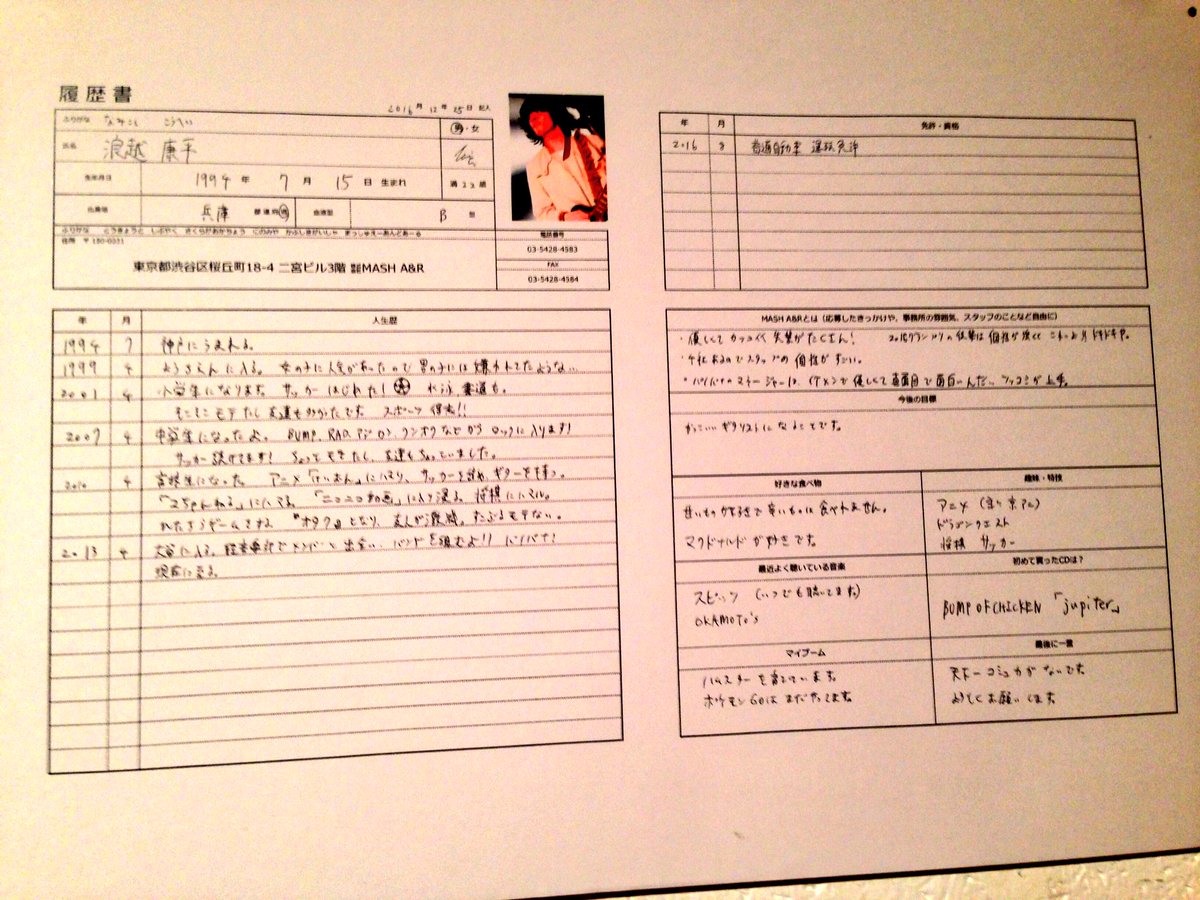 履歴書
2016年12月25日 記入
ふりがな なみこし こうへい
男・女
氏名 浪越 康平
生年月日 1994年 7月 15日 生まれ 満22歳
出身地 兵庫 都道府県 血液型 B型
ふりがな とうきょうと しぶやく さくらがおかちょう にのみや かぶしきがいしゃ まっしゅえーあんどあーる
住所 〒150-0031
東京都渋谷区桜丘町18-4 二宮ビル3階 MASH A&R
電話番号
03-5428-4583
FAX
03-5428-4584
年 月 人生歴
1994 7 神戸にうまれる。
1999 4 ようちえんに入る。女の子に人気があったので男の子には嫌われてたような...
2001 4 小学生になります。サッカーはじめた! 書道も。
そこそこモテたし友達も多かったです スポーツ 得意!!
2007 4 中学生になったよ。BUMP、RAD、アジカン、ワンオクなどから ロックに入ります!
サッカー続けてます! ちょっとモテたし、友達もちょっといました。
2010 4 高校生になった。アニメ「けいおん」にハマり、サッカーを辞めギターを持つ。
「2ちゃんねる」にハマる。「ニコニコ動画」に入り浸る。将棋にハマる。
「オタク」となり、友人が激減。たぶんモテない。
2013 4 大学に入る。軽音楽部でメンバーと出会い、バンドを組むよ!! バイバイ!
現在に至る。
年 月 免許・資格
2016 8 普通自動車 運転免許
MASH A&Rとは(応募したきっかけや、事務所の雰囲気、スタッフのことなど自由に)
・優しくてカッコイイ先輩がたくさん! 2016グランプリの後輩は個性が強くて これからドキドキや。
・4社あるのでスタッフの個性がすごい。
・マネージャーは、イケメンで優しくて真面目で面白いんだ。ツッコミが上手。
今後の目標
かっこいいギタリストになることです。
好きな食べ物
甘いものが好きで辛いものは食べれません。
マクドナルドが好きです。
趣味・特技
アニメ(京アニ)
ドラゴンクエスト
将棋 サッカー
最近よく聴いている音楽
スピッツ(いつでも聴いてます)
OKAMOTO's
初めて買ったCDは?
BUMP OF CHICKEN 「jupiter」
マイブーム
ハムスターを育てています。
ポケモンGOはまだやってます。
最後に一言
コミュ力がないです
よろしくお願いします。